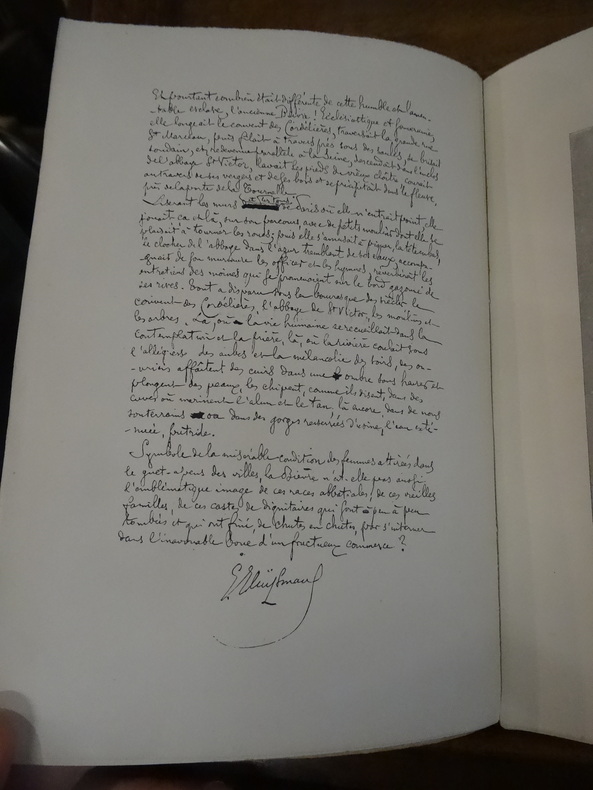 Et pourtant combien était différente de cette humble et lamen-
-table esclave, l'ancienne Bièvre! Ecclésiastique et souveraine,
elle longeait le couvent des Cordelières, traversait la grande rue
St Marceau, puis filait à travers près sous des saules, se brisait
soudain, et, devenue parallèle à la Seine, descendait dans l'enclos
de l'abbaye St Victor, lavait les pieds du vieux cloître, courait
au travers de ses vergers et de ses bois et se précipitait dans le fleuve,
près de la porte de la Tournelle.
Liserant les murs de Paris où elle n'entrait point, elle
jouait çà et là, sur son parcours, avec de petits moulins dont elle se
plaisait à tourner les roues; puis elle s'amusait à piquer, la tête en bas,
le clocher de l'abbaye dans l'azur tremblant de ses eaux, accompa-
gnait de son murmure les offices et les hymnes, réverbérait les
entretiens des moines qui se promenaient sur le bord gazonné de
ses rives. Tout a disparu sous la bourrasque des siècles, le
couvent des Cordelières, l'abbaye de St Victor, les moulins et
les arbres. Là, où la vie humaine se recueillait dans la
contemplation et la prière, là, où la rivière coulait sous
l'allégresse des aubes et la mélancolie des soirs, des ou-
-vriers affaitent des cuirs dans une ombre sans heures et
plongent des peaux, les chipent, comme ils disent, dans des
cuves où marinent l'alun et le tan, là encore, dans de noirs
souterrains ou dans des gorges resserrées d'usine, l'eau exté-
-nuée, putride.
Symbole de la misérable condition des femmes attirées dans
le guet-apens des villes, la Bièvre n'est-elle pas aussi
l'emblématique image de ces races abbatiales, de ces vieilles
familles, de ces castes de dignitaires qui sont peu à peu
tombées et qui ont fini, de chutes en chutes, par s'interner
dans l'inavouable boue d'un fructueux commerce?
Huÿsmans